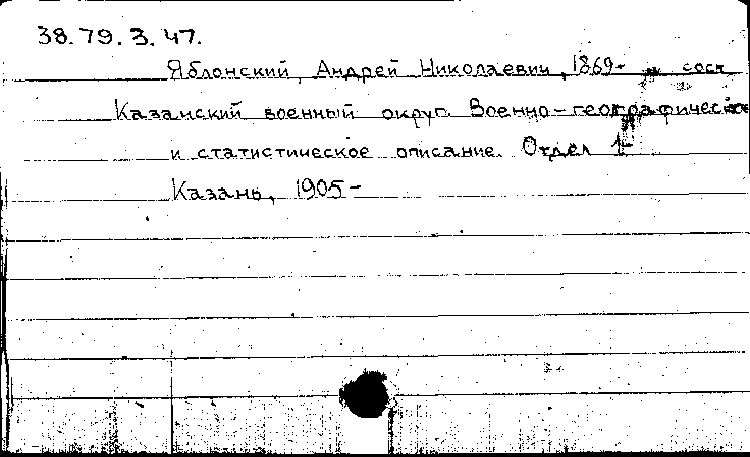 38.79.3.47.
Яблонский, Андрей Николаевич, 1869- сост
Казанский военный округ. Военно-географическое
и статистическое описание. Отдел 1-
Казань, 1905-